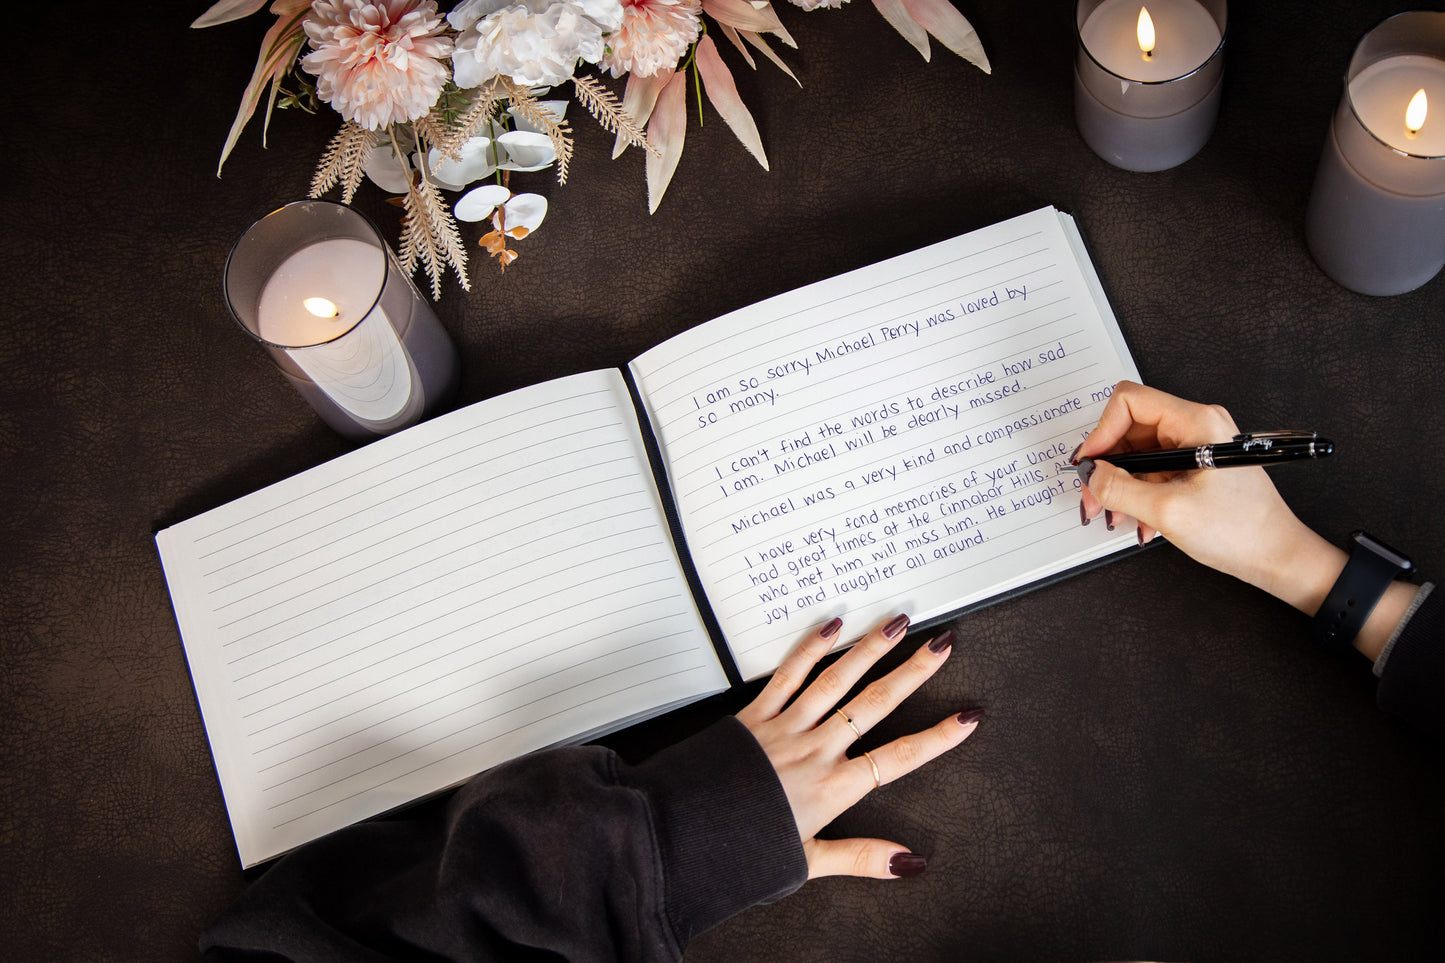 I am so sorry. Michael Perry was loved by
so many.
I can't find the words to describe how sad
I am. Michael will be dearly missed.
Michael was a very kind and compassionate
I have very fond memories of your Uncle.
had great times at the Cinnabar Hills.
who met him will miss him. He brought
joy and laughter all around.